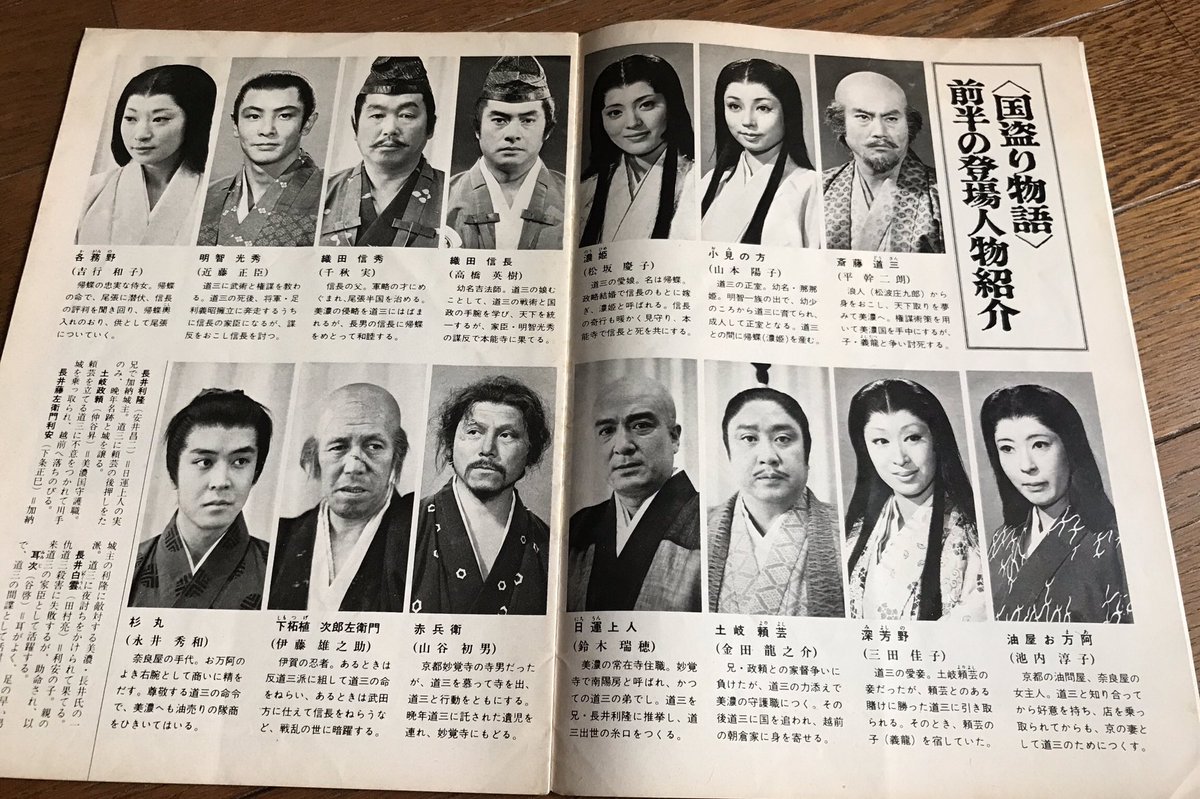 〈国盗り物語〉
前半の登場人物紹介
斎藤道三
(平幹二朗)
浪人（松波庄九郎）から
身をおこし、天下取りを夢
みて美濃へ。権謀術策を用
いて美濃国を手中にするが、
子・義龍と争い討死する。
小見の方
(山本陽子)
道三の正室。幼名・那那
姫。明智一族の出で、幼少
のころから道三に育てられ、
成人して正室となる。道三
との間に帰蝶(濃姫)を産む。
濃姫
(松坂慶子)
道三の愛娘。名は帰蝶。
政略結婚で信長のもとに嫁
ぎ、濃姫と呼ばれる。信長
の奇行も暖かく見守り、本
能寺で信長と死を共にする。
織田信長
(高橋英樹)
幼名吉法師。道三の娘む
ことして、道三の戦術と国
政の手腕を学び、天下を統
一するが、家臣・明智光秀
の謀反で本能寺に果てる。
織田信秀
(千秋実)
信長の父。軍略の才にめ
ぐまれ、尾張半国を治める。
美濃の侵略を道三にはばま
れるが、長男の信長に帰蝶
をめとって和睦する。
明智光秀
(近藤正臣)
道三に武術と権謀を教わ
る。道三の死後、将軍・足
利義昭擁立に奔走するうち
に信長の家臣になるが、謀
反をおこし信長を討つ。
各務野
(吉行和子)
帰蝶の忠実な侍女。帰蝶
の命で、尾張に潜伏、信長
の評判を聞き回り、帰蝶輿
入れのおり、供として尾張
についていく。
油屋お万阿
(池内淳子)
京都の油問屋、奈良屋の
女主人。道三と知り合って
から好意を持ち、店を乗っ
取られてからも、京の妻と
して道三のためにつくす。
深芳野
(三田佳子)
道三の愛妾。土岐頼芸の
妾だったが、頼芸とのある
賭けに勝った道三に引き取
られる。そのとき、頼芸の
子(義龍)を宿していた。
土岐頼芸
(金田龍之介)
兄・政頼との家督争いに
負けたが、道三の力添えで
美濃の守護職につく。その
後道三に国を追われ、越前
の朝倉家に身を寄せる。
日運上人
(鈴木瑞穂)
美濃の常在寺住職。妙覚
寺で南陽房と呼ばれ、かつ
ての道三の弟でし。道三を
兄・長井利隆に推挙し、道
三出世の糸口をつくる。
赤兵衛
(山谷初男)
京都妙覚寺の寺男だった
が、道三を慕って寺を出、
道三と行動をともにする。
晩年道三に託された遺児を
連れ、妙覚寺にもどる。
下柘植次郎左衛門
(伊藤雄之助)
伊賀の忍者。あるときは
反道三派に組して道三の命
をねらい、あるときは武田
方に仕えて信長をねらうな
ど、戦乱の世に暗躍する。
杉丸
(永井秀和)
奈良屋の手代。お万阿の
よき右腕として商いに精を
だす。尊敬する道三の命令
で、美濃へも油売りの隊商
をひきいてはいる。
長井利隆（安井昌二）＝日運上人の実
兄で加納城主。道三に頼芸の後押しをた
のみ、晩年名跡と城を譲る。
土岐政頼（仲谷昇）＝美濃国守護職。
頼芸を立てる道三に不意をつかれて川手
城を乗っ取られ、越前へ落ちのびる。
長井藤左衛門利安（下条正巳）＝加納
城主の利隆に敵対する美濃・長井氏の一
派。道三に夜討ちをかけられて果てる。
長井白雲（田村亮）＝利安の子。親の
仇道三殺害に失敗するが、助命され、以
来道三の家臣として活躍する。
耳次（谷啓）＝耳がよく、足の早い男
で、道三の間諜として活